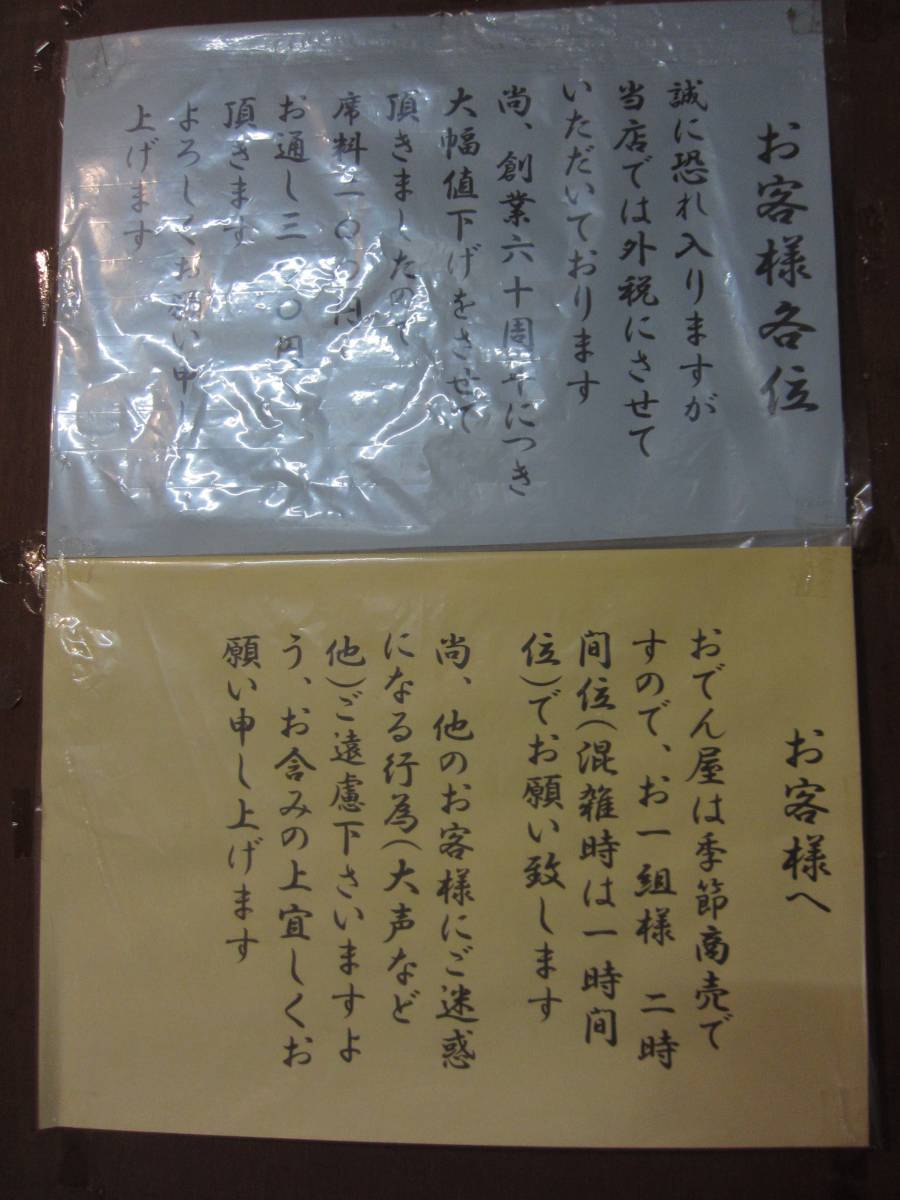 お客様各位
誠に恐れ入りますが
当店では外税にさせて
いただいております
尚、創業六十周年につき
大幅値下げをさせて
頂きましたので
席料二〇〇円
お通し三〇〇円
頂きます
よろしくお願い申し
上げます
お客様へ
おでん屋は季節商売で
すので、お一組様 二時
間位(混雑時は一時間
位)でお願い致します
尚、他のお客様にご迷惑
になる行為(大声など
他)ご遠慮下さいますよ
う、お含みの上宜しくお
願い申し上げます